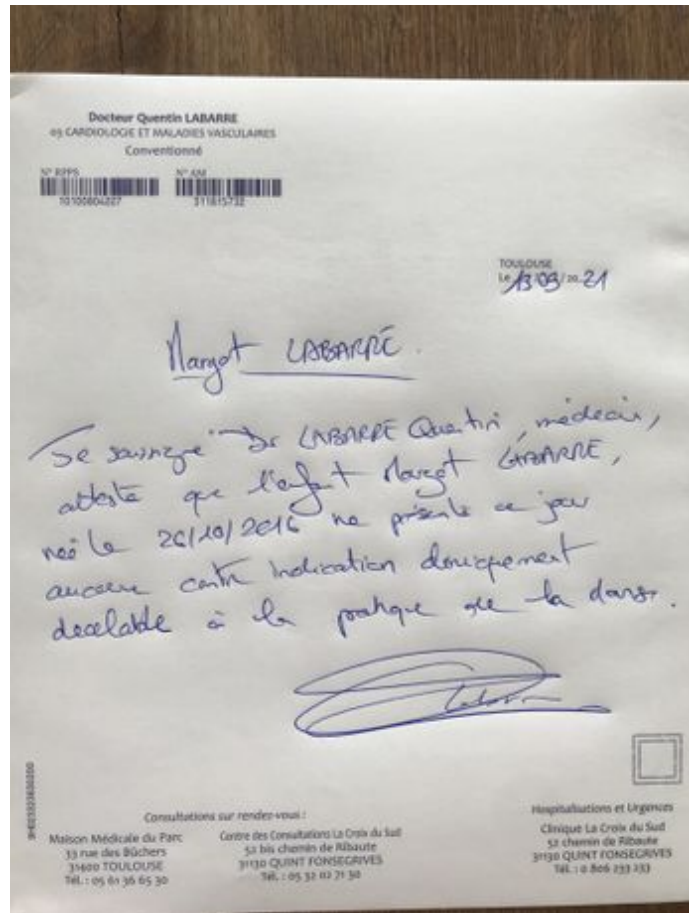 Docteur Quentin LABARRE
03 CARDIOLOGIE ET MALADIES VASCULAIRES
Conventionné
N° RPPS N° AM
10100804227 311815732
TOULOUSE
Le 13/09/2021
Margot LABARRE.
Je soussigné Dr LABARRE Quentin, médecin,
atteste que l'enfant Margot LABARRE,
neé le 26/10/2016 ne présente ce jour
aucune contre indication cliniquement
decelable à la pratique de la danse.
Consultations sur rendez-vous :
Maison Médicale du Parc
33 rue des Bûchers
31400 TOULOUSE
Tél. : 05 61 36 65 30
Centre des Consultations La Croix du Sud
52 bis chemin de Ribaute
31130 QUINT FONSEGRIVES
Tél. : 05 32 02 71 30
Hospitalisations et Urgences
Clinique La Croix du Sud
52 chemin de Ribaute
31130 QUINT FONSEGRIVES
Tél. : 0 806 233 233